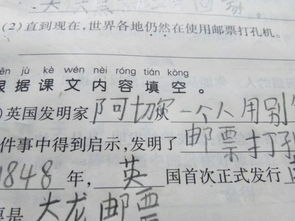 (2)直到现在,世界各地仍然在使用邮票打孔机。
jù kè wén nèi róng tián kòng
根据课文内容填空。
英国发明家阿切尔一个人用别
件事中得到启示,发明了邮票打孔
1848年,英国首次正式发行
是大龙邮票